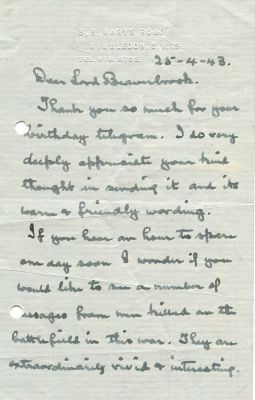 3, S. MARYS ROAD,
WIMBLEDON, S.W.19
25-4-43.
Dear Lord Beaverbrook.
Thank you so much for your
birthday telegram. I do very
deeply appreciate your kind
thought in sending it and its
warm & friendly wording.
If you have an hour to spare
one day soon I wonder if you
would like to see a number of
messages from men killed on the
battlefield in this war. They are
extraordinarily vivid & interesting.